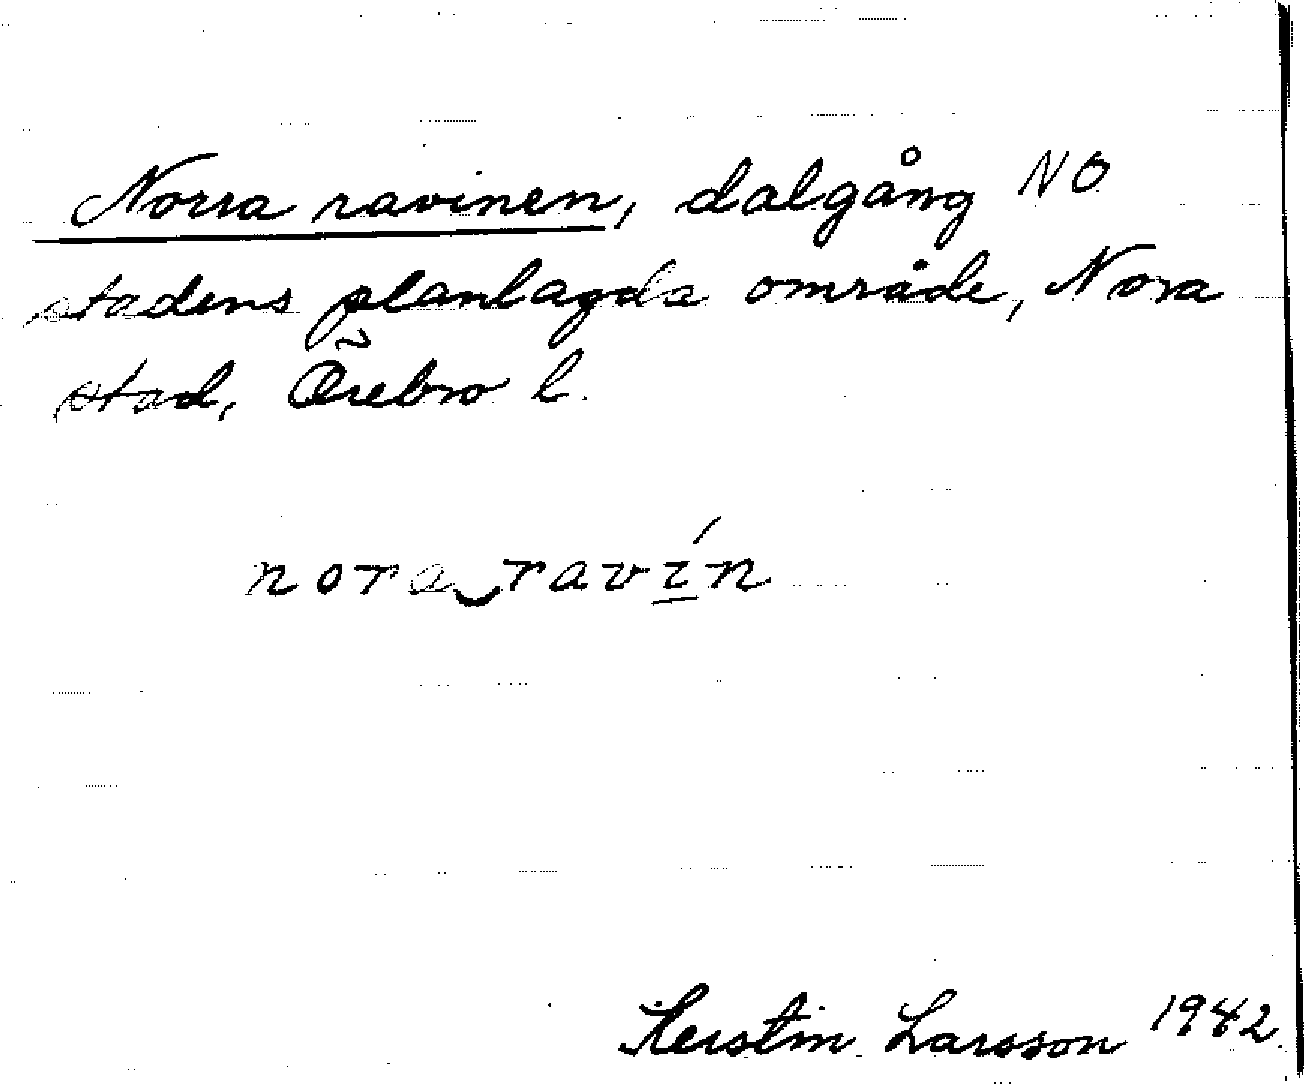 Norra ravinen, dalgång NO
stadens planlagda område, Nora
stad, Örebro l.
nora‿ravı̲́n
Kerstin Larsson 1942.